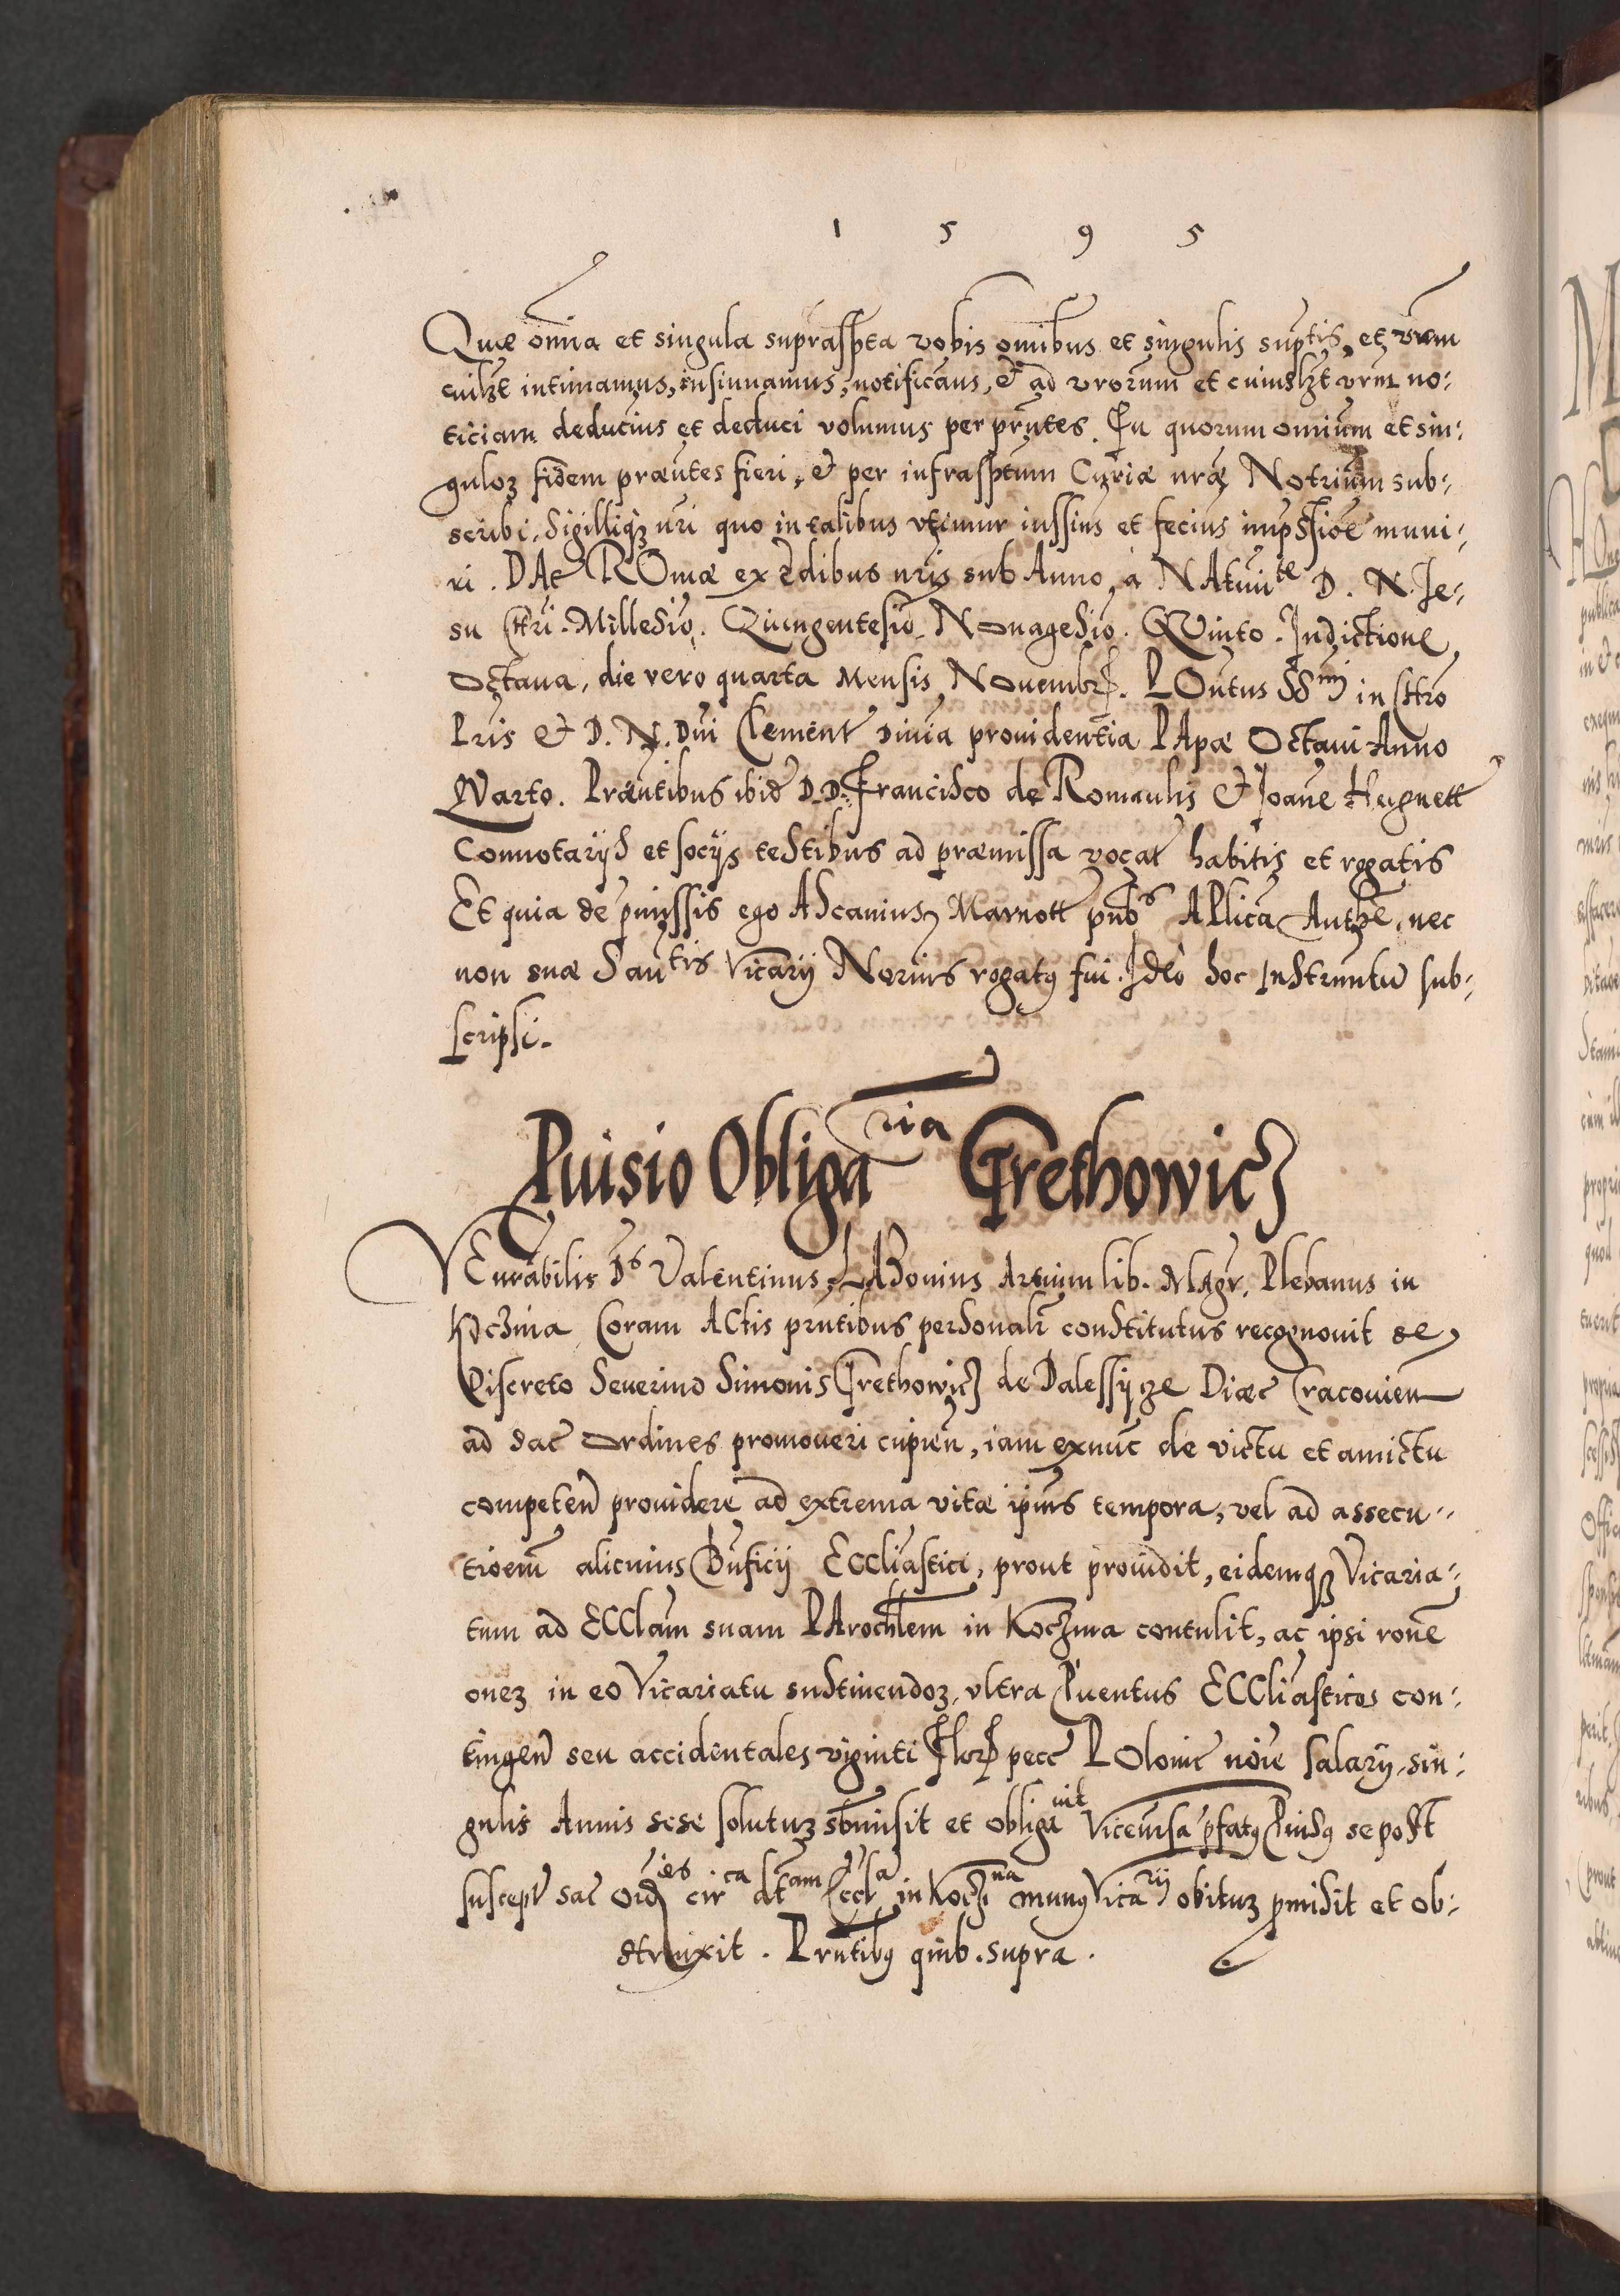 1 5 9 5
Quæ om̃ia et singula suprasp̃ta vobis om̃ibus et singulis sup̃tis, et vr̃um
cuilz̃t intimamus, insinuamus, notificam̃us, et ad vrorum et cuiuslz̃t vrũm no:
ticiam deducim̃us et deduci volumus per pr̃ntes. In quorum omĩum et sin:
guloꝝ fidem præñtes fieri, et per infrasp̃tum Curiæ nr̃æ Notriũm sub:
scribi, Sigilliqꝫ nr̃i quo in talibus vtimur iussim̃us et fecim̃us imp̃ssiõe muni:
ri. DAt̃ ROmæ ex Ædibus nr̃is sub Anno, à NAtiui^te D. N. Je:
su Chr̃i. Milleśio. Quingentesĩo. Nonagesĩo. QVinto. Indictione
octaua, die vero quarta Mensis Nouembr̃. POnt̃us SS^mi in Chr̃o
Pr̃is & D. N. Dñi Clement̃ Diuĩa prouidentĩa PApæ Octaui Anno
QVarto. Præñtibus ibid̃ D. D. Francisco de Romaulis & Joañe Hugnett
Connotarijs et socijs testibus ad præmissa vocat̃ habitis et rogatis
Et quia de p̃missis ego AScanius Marnott pub^s APlicã Auth̃e, nec
non suæ Sañ^tis Vicarij Norĩus rogatꝰ fui. Ideò hoc Instrum̃tu sub:
scripsi.
Puisio Obliga^ria Grethowicz
VEnerãbilis D^s Valentinus LADonius Artium lib. MAgr̃. Plebanus in
Koczina Coram ACtis pr̃ntibus personalr̃ constitutus recognouit se
Discreto Seuerino Simonis Grethowicz de Dalessijcze Diæc̃ Cracouieñ
ad sac̃ ordines promoueri cupieñ, iam exnũc de victu et amictu
competeñ prouidere ad extrema vitæ ipĩus tempora, vel ad assecu:
tioem̃ alicuius Bñficij ECCliãstici, prout prouidit, eidemqꝫ Vicaria:
tum ad ECClãm suam PArochl̃em in Koczina contulit, ac ipsi roñe
oneꝝ in eo Vicariatu sustinendoꝝ, vltra Puentus ECCliãsticos con:
tingeñ seu accidentales viginti Flor̃ pecc̃ POlonic̃ noĩe salarij, sin:
gulis Annis sese solutuꝝ sb̃misit et obliga^uit Vicẽuersa p̃fatꝰ Puisꝰ se post
suscept̃ sac̃ ord^ies cir^ca dt^am Eccl^a in Kocz^na munꝰ Vica^rij obituꝝ p̃misit et ob:
strinxit. Pr̃ntibꝰ quib. supra.